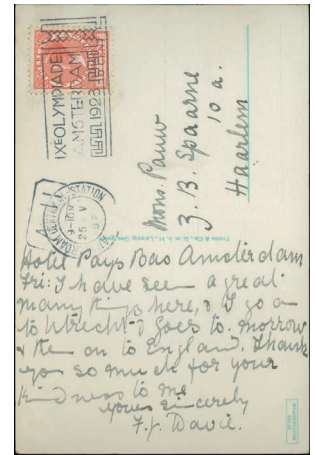 IXE OLYMPIADE
AMSTERDAM
1928
STATION
25 V
Mons. Pauw
Z. B. Spaarne
10 a.
Haarlem
Hotel Pays Bas Amsterdam
Fri: I have seen a great
many things here, & I go on
to Utrecht & Goes to. morrow
& then on to England. Thank
you so much for your
kindness to me
yours sincerely